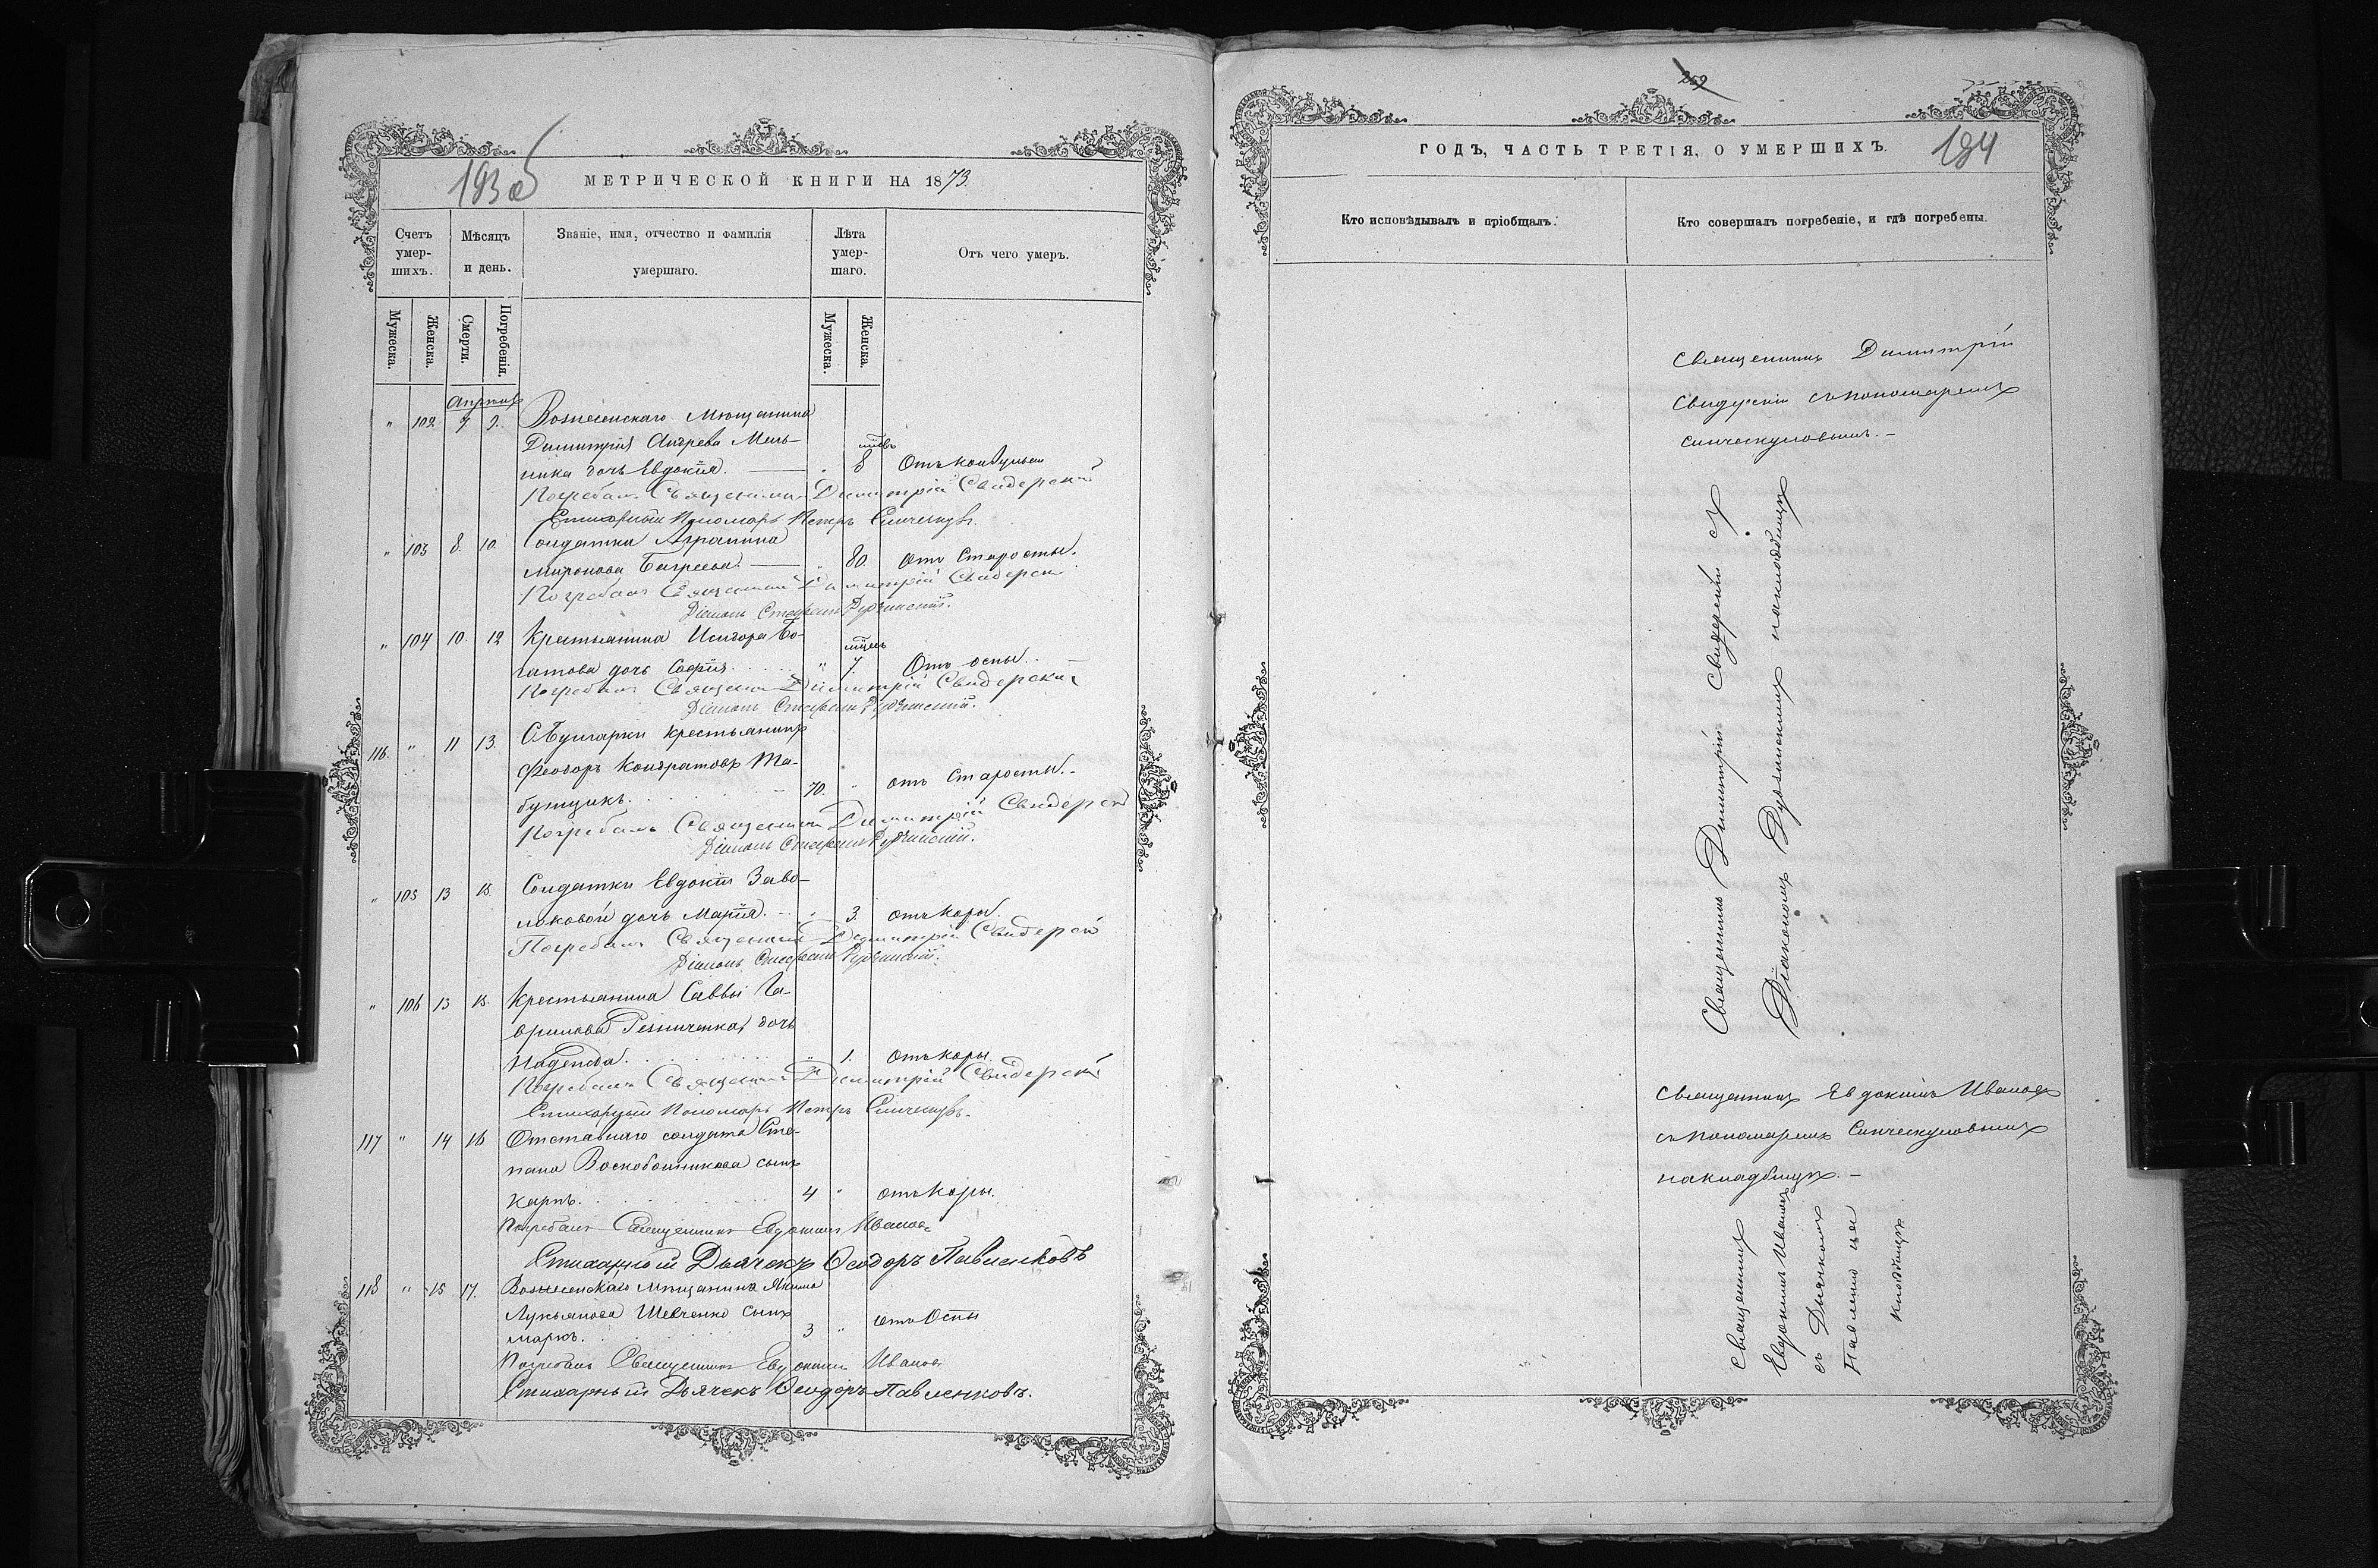 193 об
МЕТРИЧЕСКОЙ КНИГИ НА 1873.
Счетъ умершихъ.
Мѣсяцъ и день.
Званіе, имя, отчество и фамилія умершаго.
Лѣта умершаго.
Отъ чего умеръ.
Мужеска.
Женска.
Смерти.
Погребенія.
Мужеска.
Женска.
Апрѣль
" 102. 7 9. Вознесенскаго Мѣщанина
Димитрія Андреева Мель-
ника дочь Евдокія. 8 Отъ конвульсіи
Погребалъ Священникъ Димитрій Свидерскій
Стихарный Пономарь Петръ
" 103 8. 10. Солдатка Агрипина
Миронова " 80. отъ Старости.
Погребалъ Священникъ Димитрій Свидерскій
Діаконъ Стефанъ
" 104 10. 12 Крестьянина Исидора Бо-
гатова дочь Софія. " 7. Отъ оспы.
Погребалъ Священникъ Димитрій Свидерскій
Діаконъ Стефанъ
116. " 11 13. крестьянинъ
Феодоръ Кондратовъ Та-
бунщикъ. 70. " отъ Старости.
Погребалъ Священникъ Димитрій Свидерскій
Діаконъ Стефанъ
" 105 13 15 Солдатки Евдокіи Заво-
локовой дочь Марія. " 3. отъ Кори.
Погребалъ Священникъ Димитрій Свидерскій
Діаконъ Стефанъ
" 106 13 15. Крестьянина Саввы Га-
врилова Резниченка, дочь
Надежда. " 1. отъ кори.
Погребалъ Священникъ Димитрій Свидерскій
Стихарный Пономарь Петръ
117 " 14 16 Отставнаго солдата Сте-
пана Воскобойникова сынъ
Карпъ. 4 " отъ Кори.
Погребалъ Священникъ Евдокимъ Ивановъ
Стихарный Дьячокъ Ѳеодоръ Павленковъ
118 " 15 17. Вознесенскаго мѣщанина Якима
Лукьянова Шевченко сынъ
Маркъ. 3 " отъ Оспы
Погребалъ Священникъ Евдокимъ Ивановъ
Стихарный Дьячекъ Ѳеодоръ Павленковъ.
259
194
ГОДЪ, ЧАСТЬ ТРЕТІЯ, О УМЕРШИХЪ.
Кто исповѣдывалъ и пріобщалъ.
Кто совершалъ погребеніе, и гдѣ погребены.
Священникъ Димитрій
Свидерскій съ пономаремъ
Священникъ Димитрій Свидерскій
Діакономъ на кладбищѣ
Священникъ Евдокимъ Ивановъ
съ пономаремъ
на кладбищѣ. –
Священникъ
Евдокимъ Ивановъ
съ Дьячкомъ
кладбищѣ